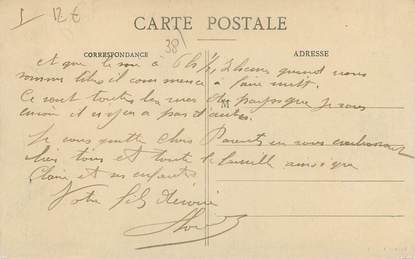 12 €
38
CARTE POSTALE
CORRESPONDANCE
ADRESSE
et que le soir à 6 h ½, 7 heures quand nous
sommes libre il commence à faire nuit.
Ce sont toutes les vues du pays que je vous
M
envoie il n'y en a pas d'autres.
Je vous quitte chers Parents en vous embrassant
bien tous et toute la famille ainsi que
Claire et ses enfants
Votre fils dévoué